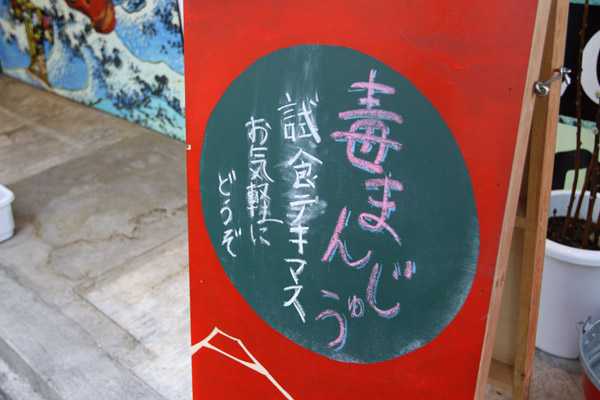 毒まんじゅう
試食デキマス
お気軽に
どうぞ